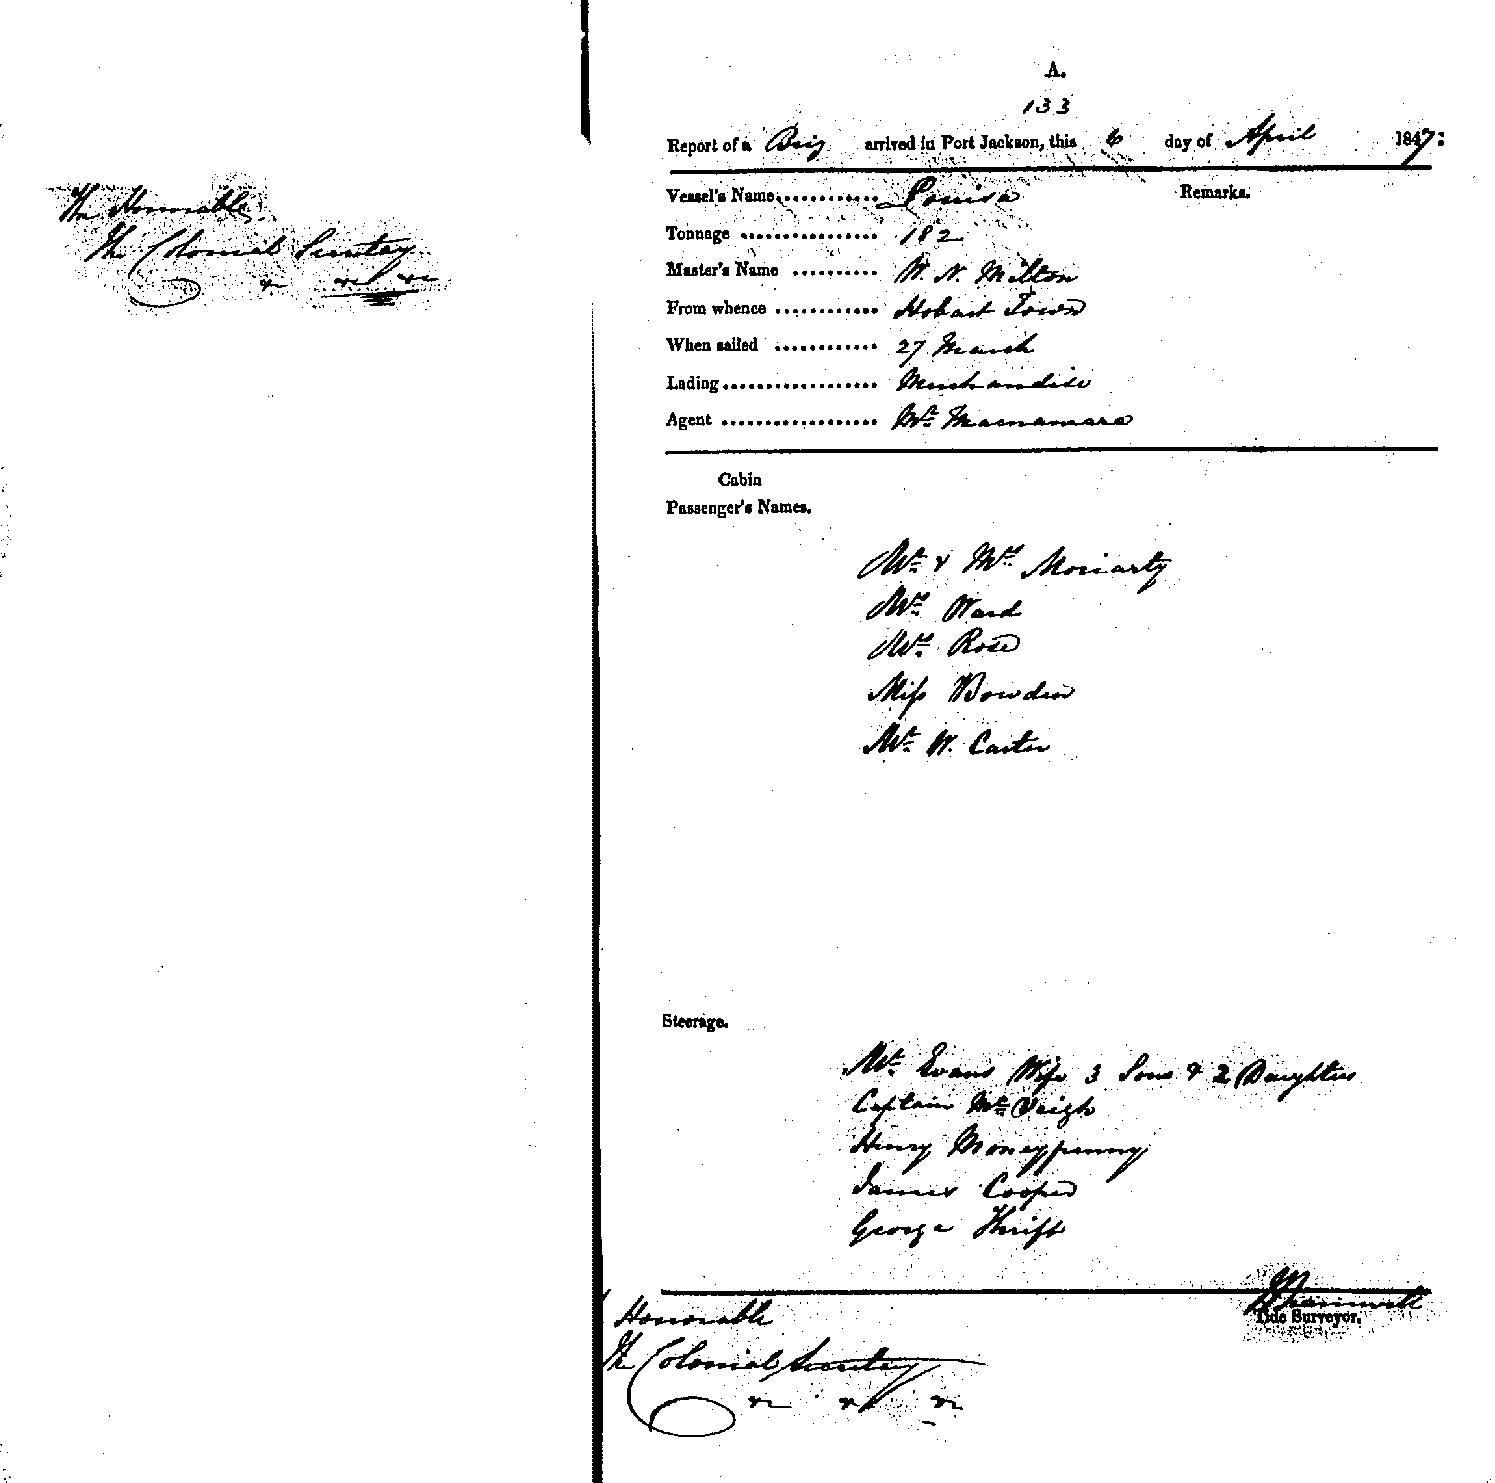 The Honorable
The Colonial Secretary
&c &c &c
A.
133
Report of a Brig arrived in Port Jackson, this 6 day of April 1847:
Vessel's Name............ Louisa Remarks.
Tonnage ................ 182
Master's Name .......... W. N. Milton
From whence ............ Hobart Town
When sailed ............ 27 March
Lading.................. Merchandise
Agent .................. Mr. Macnamara
Cabin
Passenger's Names.
Mr. & Mrs. Moriarty
Mrs. Ward
Mrs. Rose
Miss Bowden
Mr. W. Carter
Steerage.
Mr. Evans Wife 3 Sons & 2 Daughters
Captain McVeigh
Henry Moneypenny
James Cooper
George Thrift
Tide Surveyor.
Honorable
The Colonial Secretary
&c &c &c